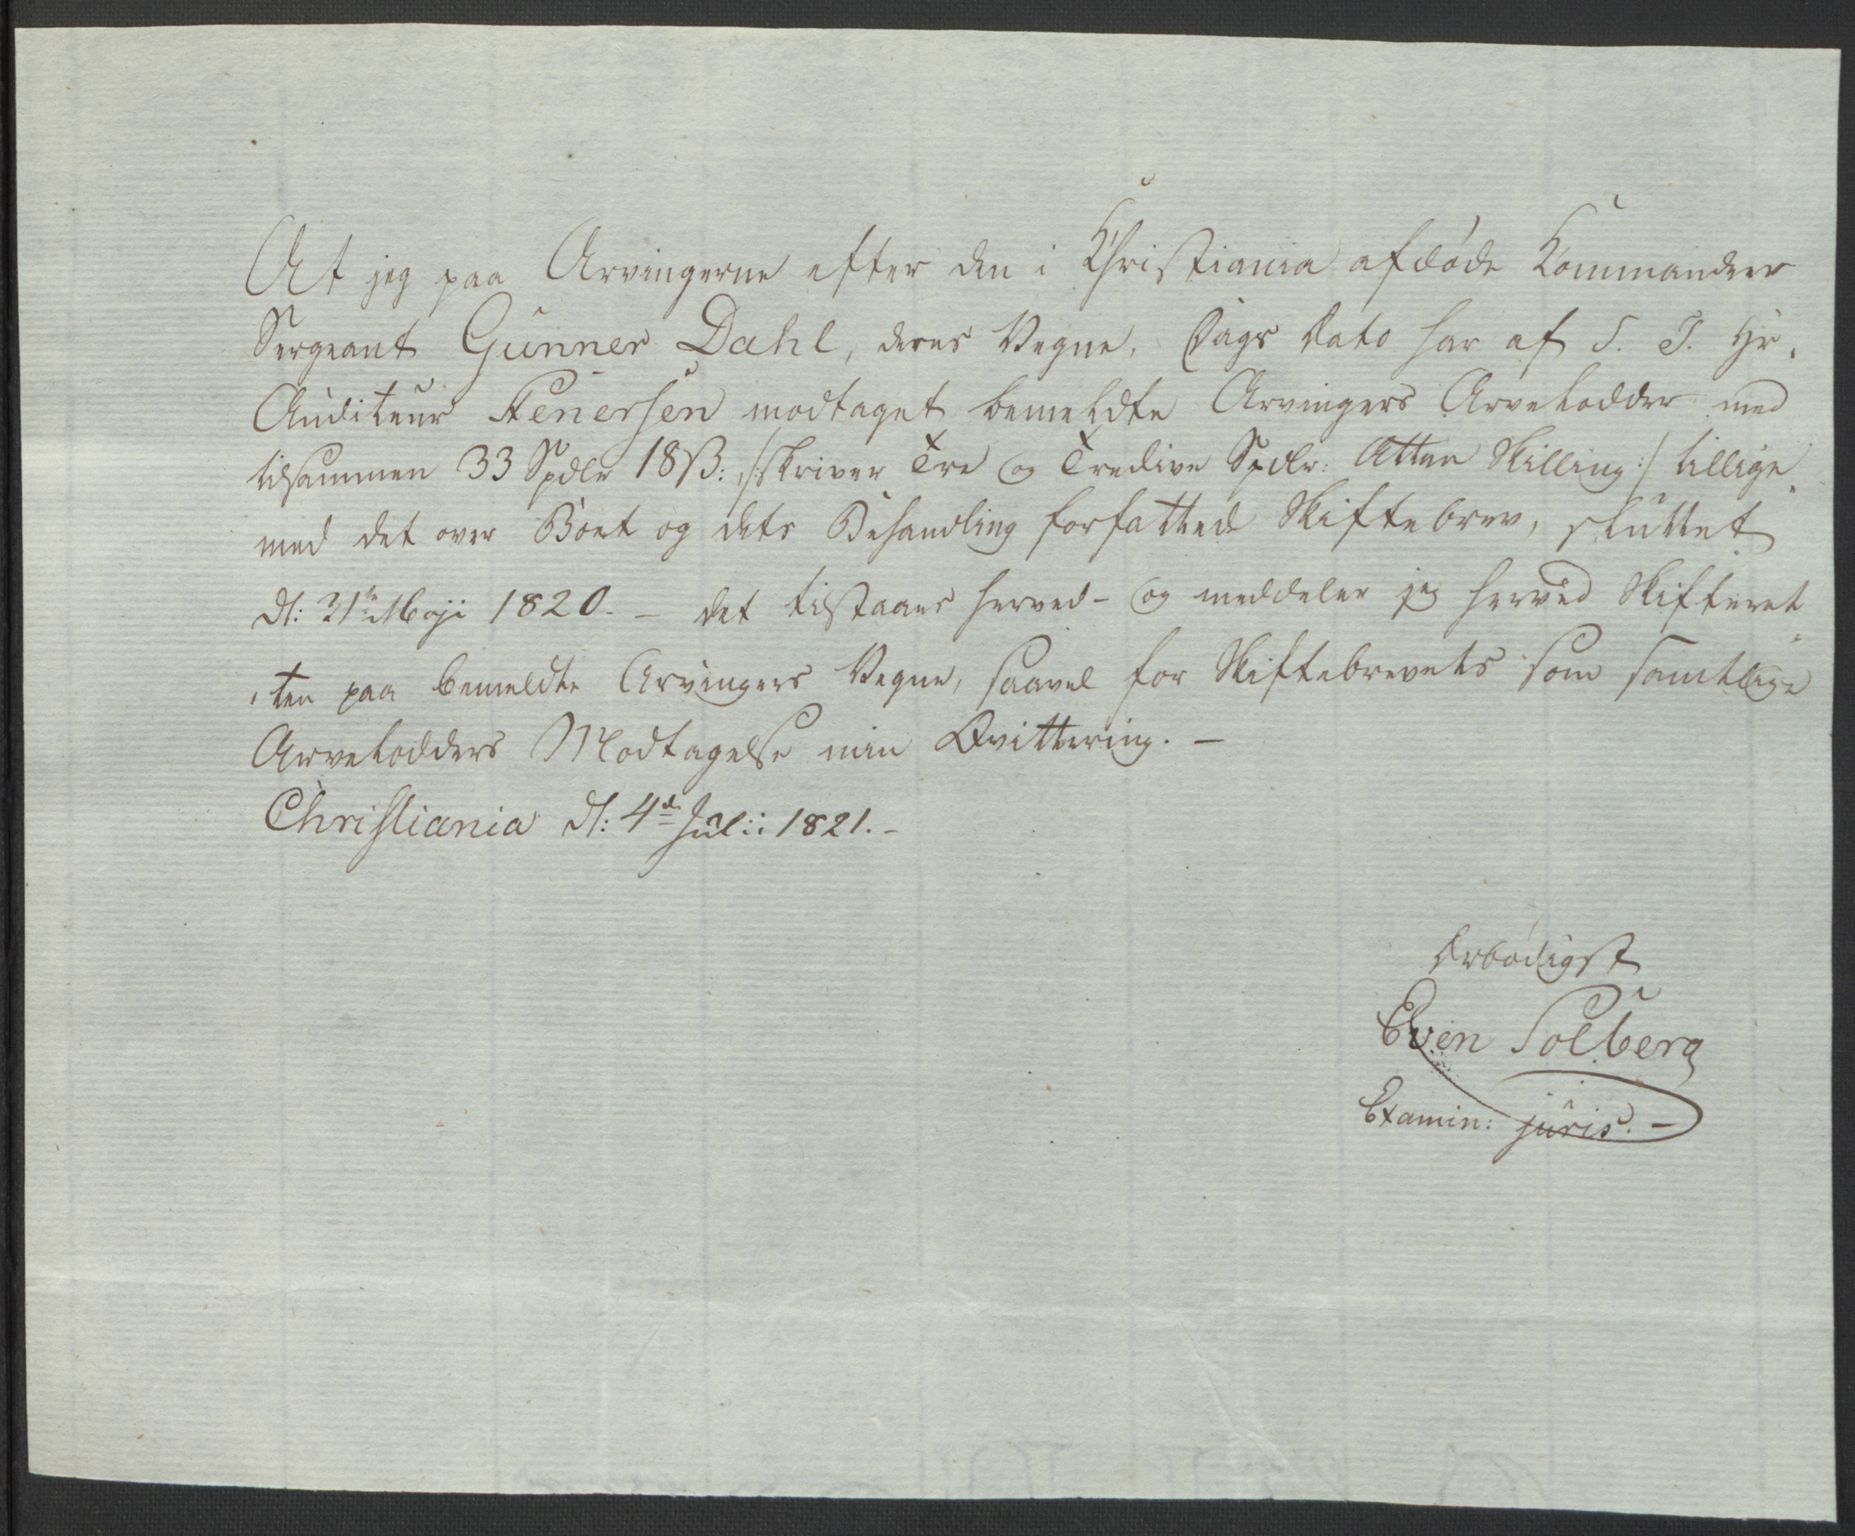 At jeg paa Arvingerne efter den i Christiania afdøde Kommandeer
Sergeant Gunner Dahl, deres Vegne, Dags Dato har af S. T. Hr.
Auditeur Fenersen modtaget bemeldte Arvingers Arvelodder med
tilsammen 33 Spdlr 18 ß: /: skriver Tre og Tredive Spdlr: Atten Skilling :/ tillige
med det over Boet og dets Behandling forfattede Skiftebrev, sluttet
dl: 31te Maji 1820. – det tilstaaes herved – og meddeler jeg herved Skifteret
ten paa bemeldte Arvingers Vegne, saavel for Skiftebrevets som samtlige
Arvelodders Modtagelse min Qvittering. –
Christiania dl: 4de Julii 1821. –
Ærbødigst
Even Solberg
Examin: juris. –